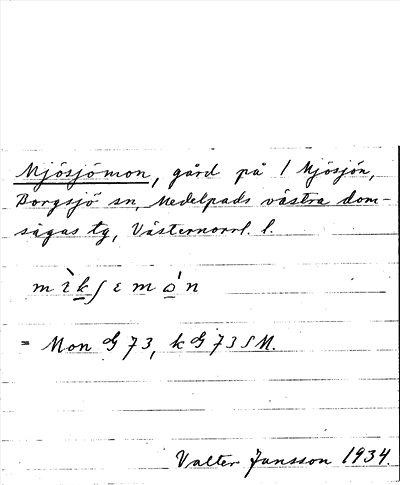 Mjösjömon, gård på 1 Mjösjön,
Borgsjö sn, Medelpads västra dom-
sagas tg, Västernorrl. l.
= Mon G 73, k G 73 S M.
Valter Jansson 1934.